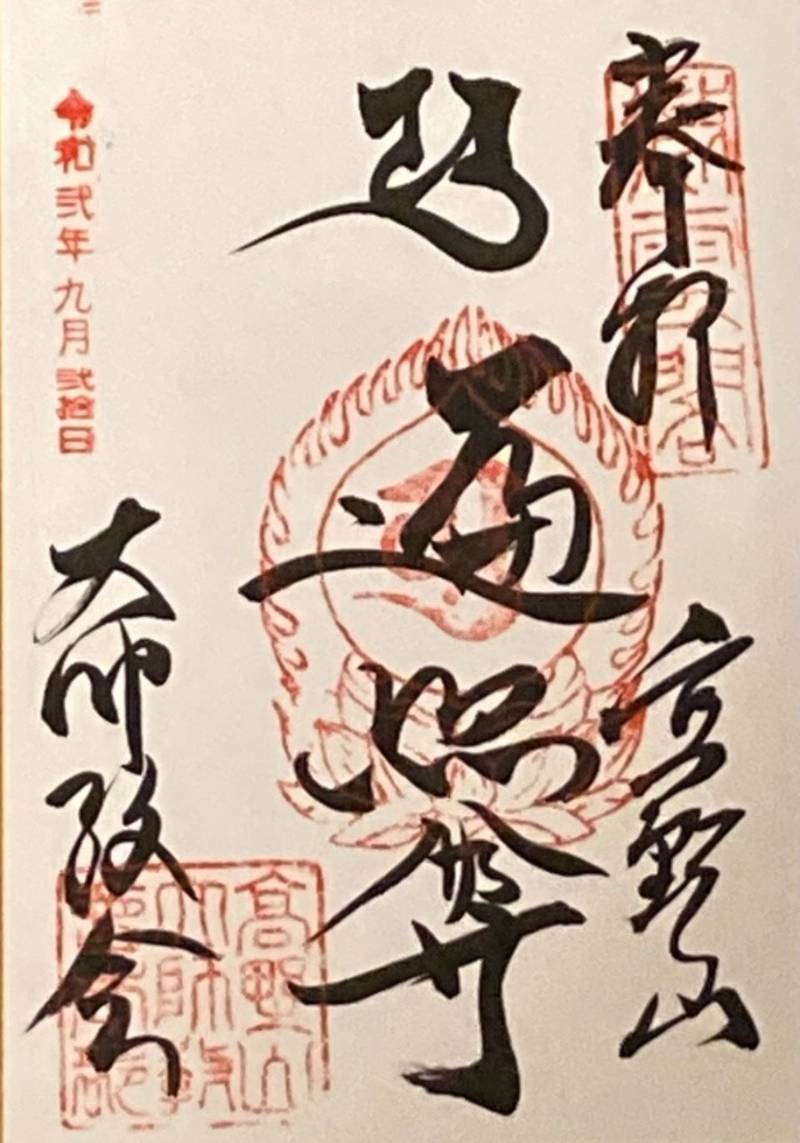 奉拝
高野山
遍照尊
令和弐年九月弐拾日
大師教会
高野山
大師教